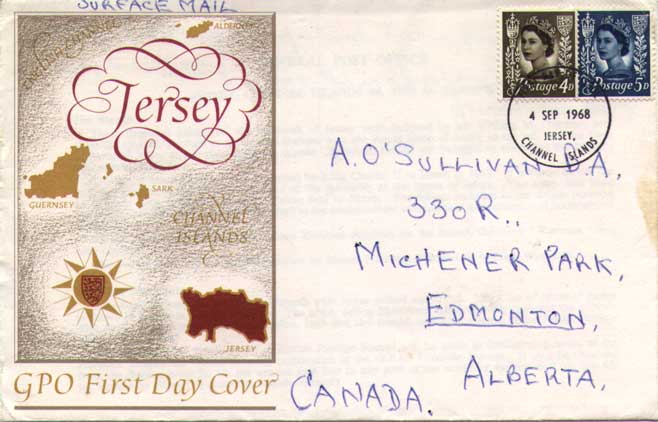 SURFACE MAIL
ALDERNEY
Jersey
GUERNSEY
SARK
CHANNEL
ISLANDS
JERSEY
GPO First Day Cover
Postage 4D
Postage 5D
4 SEP 1968
JERSEY,
CHANNEL ISLANDS
A. O'SULLIVAN B.A,
330R.,
MICHENER PARK,
EDMONTON,
ALBERTA,
CANADA.